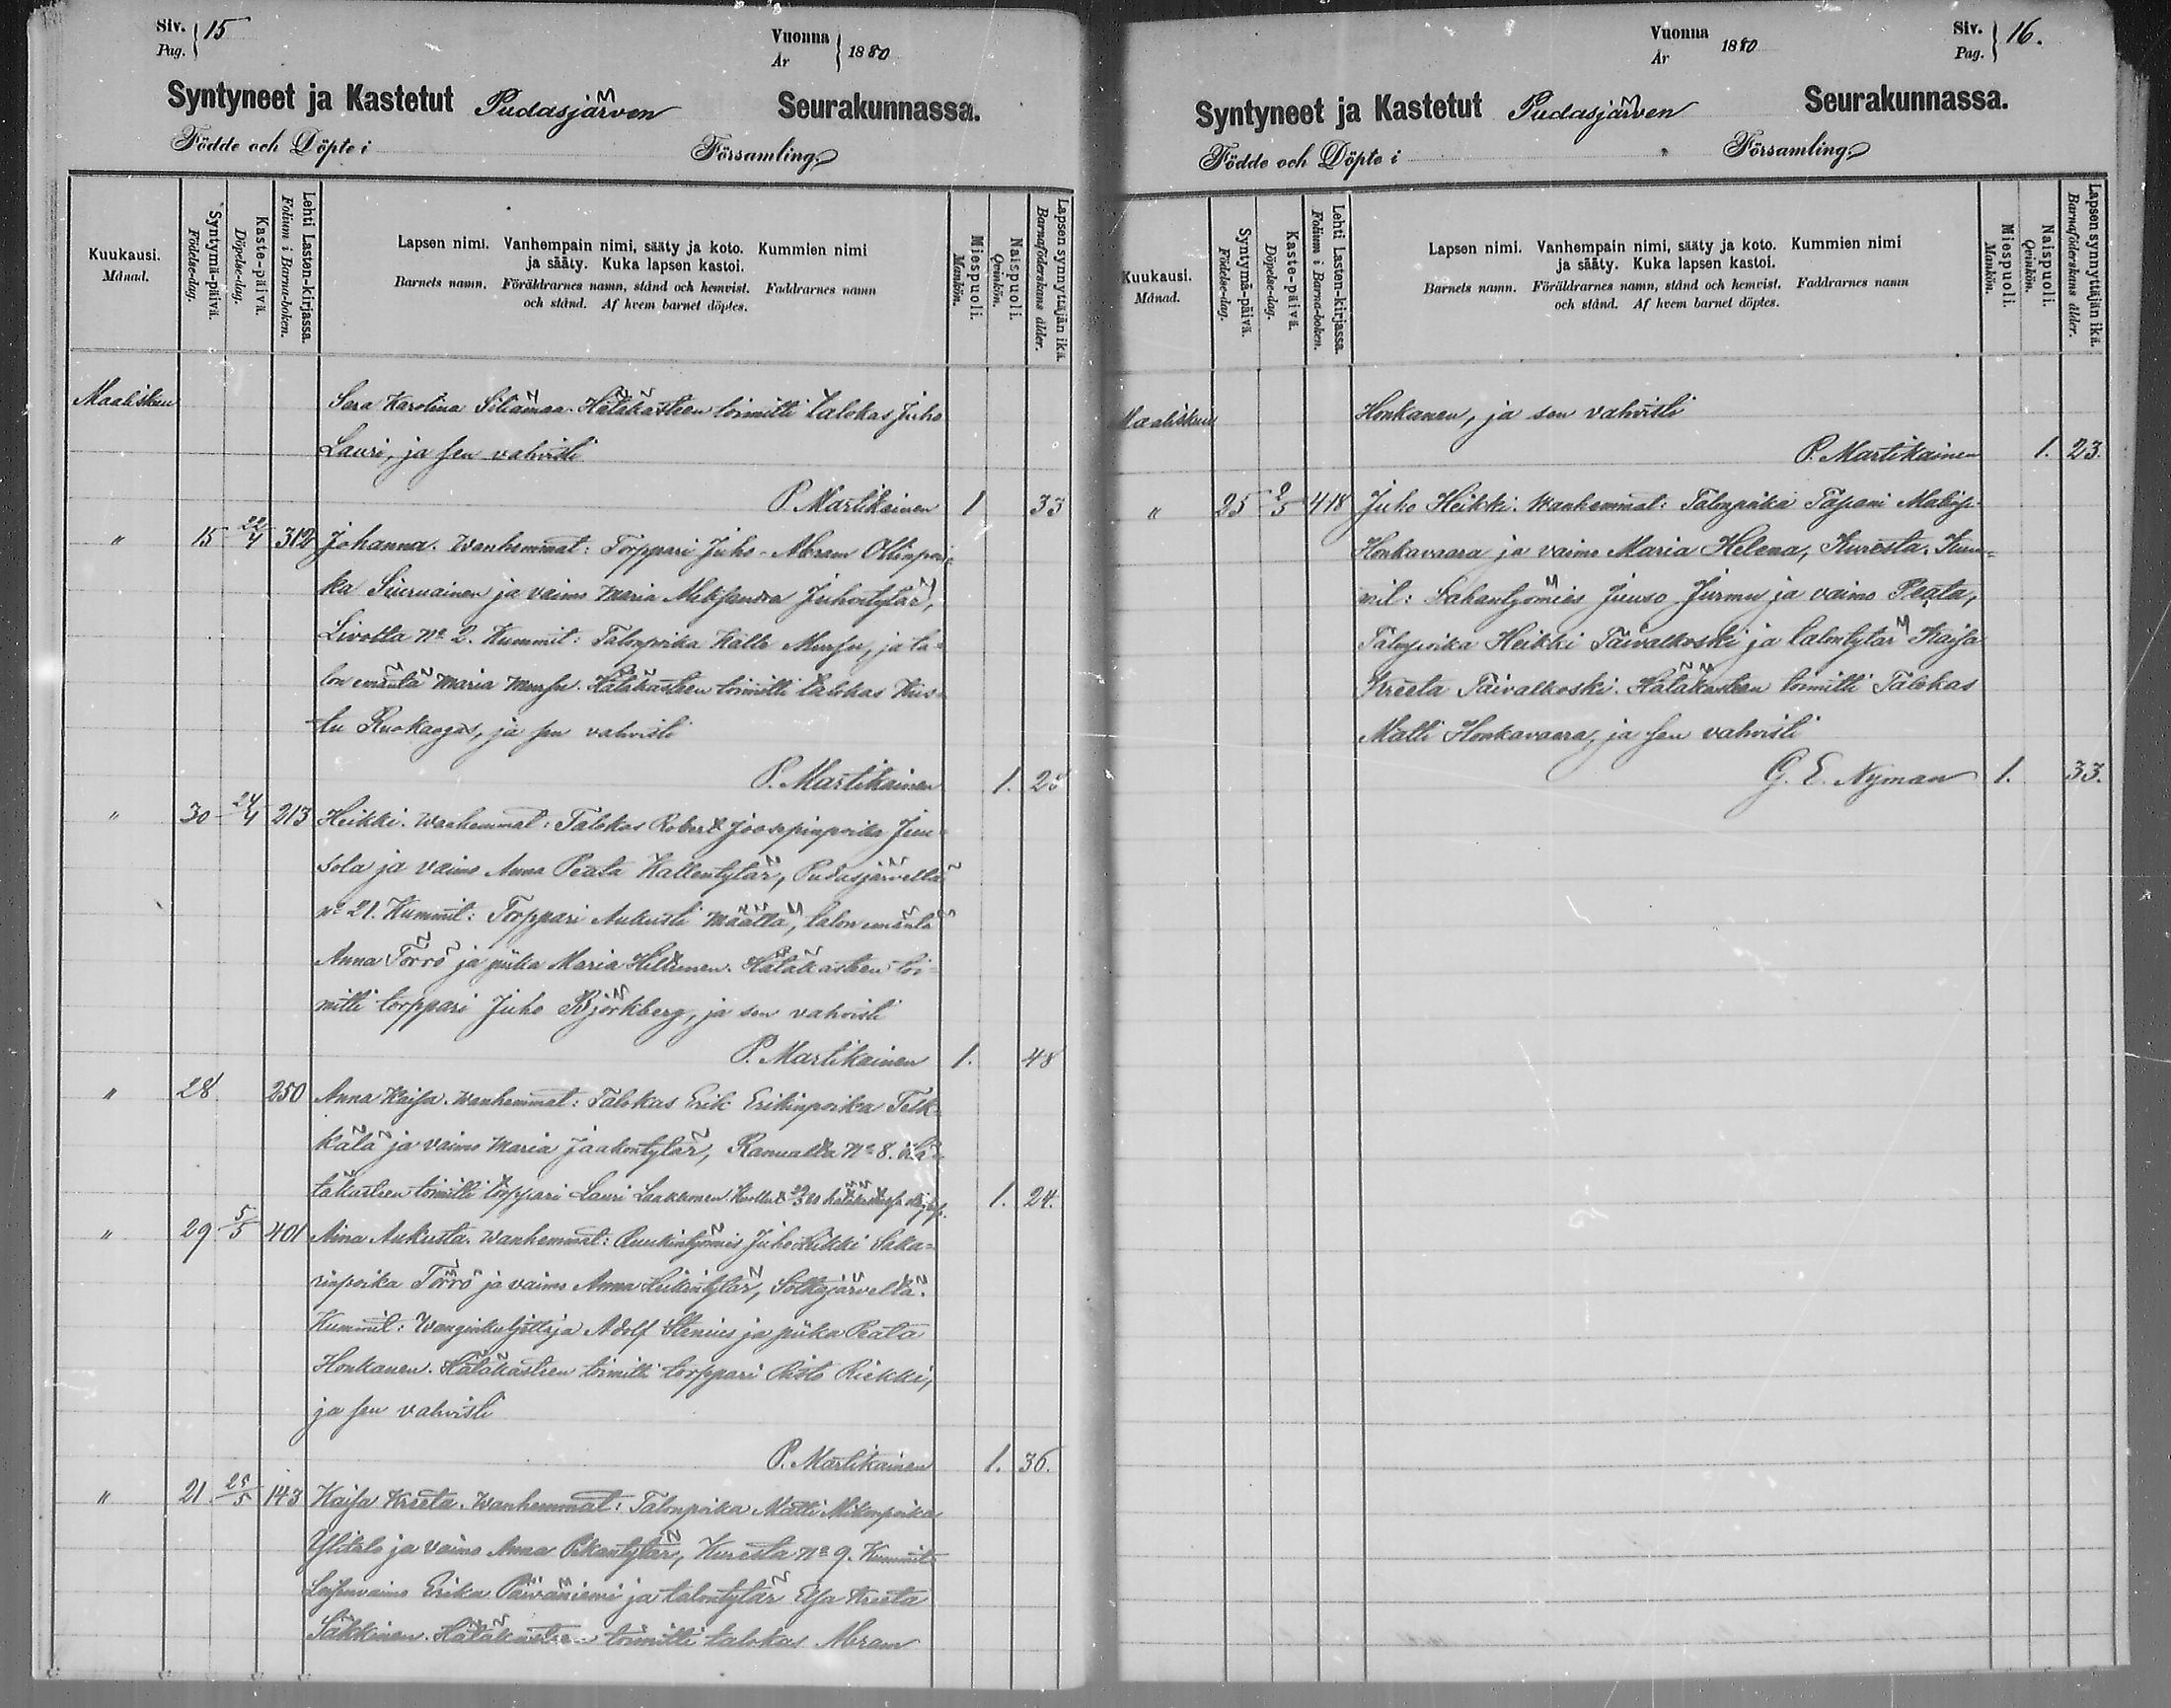 Siv. Pag. 15
Vuonna År 1880
Syntyneet ja Kastetut Pudasjärven Seurakunnassa.
Födde och Döpte i Församling.
Kuukausi. Månad.
Syntymä-päivä. Födelse-dag.
Kaste-päivä. Döpelse-dag.
Lehti Lasten-kirjassa. Folium i Barna-boken.
Lapsen nimi. Vanhempain nimi, sääty ja koto. Kummien nimi
ja sääty. Kuka lapsen kastoi.
Barnets namn. Föräldrarnes namn, stånd och hemvist. Faddrarnes namn
och stånd. Af hvem barnet döptes.
Miespuoli. Mankön.
Naispuoli. Qvinkön.
Lapsen synnyttäjän ikä. Barnaföderskans ålder.
Maaliskuu Sara Karolina Siliämaa. Hätäkasteen toimitti talokas Juho
Lauri, ja sen vahvisti
P. Martikainen 1 33
" 15 22/4 312 Johanna. Wanhemmat: Torppari Juho Abram Ollinpoi-
ka Siuruainen ja vaimo Maria Aleksandra Juhontytär,
Livolta No 2. Kummit: Talonpoika Kalle Mursu, ja ta-
lon emäntä Maria Mursu. Hätäkasteen toimitti talokas Kus-
tu Ruokangas, ja sen vahvisti
P. Martikainen 1. 28
" 30 24/4 213 Heikki. Wanhemmat: Talokas Robert Joosepinpoika Juu-
sola ja vaimo Anna Peata Kallentytär, Pudasjärveltä
No 21. Kummit: Torppari Aukusti Määttä, talon emäntä
Anna Törrö ja piika Maria Hiltunen. Hätäkasteen toi-
mitti torppari Juho Björkberg, ja sen vahvisti
P. Martikainen 1. 48
" 28 250 Anna Kaisa. Wanhemmat: Talokas Erik Erikinpoika Telk-
kälä ja vaimo Maria Jaakontytär, Ranualta No 8. Hä-
täkasteen toimitti torppari Lauri Laakkonen. 1. 24.
" 29 5/5 401 Aina Aukusta. Wanhemmat: Ruukintyömies Juho Heikki Saka-
rinpoika Törrö ja vaimo Anna Heikintytär, Sotkajärveltä.
Kummit: Wanginkuljettaja Adolf Stenius ja piika Peata
Honkanen. Hätäkasteen toimitti torppari Risto Riekki,
ja sen vahvisti
P. Martikainen 1. 36.
" 21 25/5 143 Kaisa Kreeta. Wanhemmat: Talonpoika Matti Mikonpoika
Ylitalo ja vaimo Anna Pekantytär, Kuresta No 9. Kummit
Leskenvaimo Erika Päiväniemi ja talontytär Elsa Kreeta
Säkkinen. Hätäkasteen toimitti talokas Abram
Vuonna År 1880
Siv. Pag. 16.
Syntyneet ja Kastetut Pudasjärven Seurakunnassa.
Födde och Döpte i Församling.
Kuukausi. Månad.
Syntymä-päivä. Födelse-dag.
Kaste-päivä. Döpelse-dag.
Lehti Lasten-kirjassa. Folium i Barna-boken.
Lapsen nimi. Vanhempain nimi, sääty ja koto. Kummien nimi
ja sääty. Kuka lapsen kastoi.
Barnets namn. Föräldrarnes namn, stånd och hemvist. Faddrarnes namn
och stånd. Af hvem barnet döptes.
Miespuoli. Mankön.
Naispuoli. Qvinkön.
Lapsen synnyttäjän ikä. Barnaföderskans ålder.
Maaliskuu Honkanen, ja sen vahvisti
P. Martikainen 1. 23.
" 25 2/5 418 Juho Heikki. Wanhemmat: Talonpoika Tapani
Honkavaara ja vaimo Maria Helena, Kuresta. Kum-
mit: Sahantyömies Juuso Jurmu ja vaimo Peata,
Talonpoika Heikki Taivalkoski ja talontytär Kaisa
Kreeta Taivalkoski. Hätäkasteen toimitti Talokas
Matti Honkavaara, ja sen vahvisti
G. E. Nyman 1. 33.